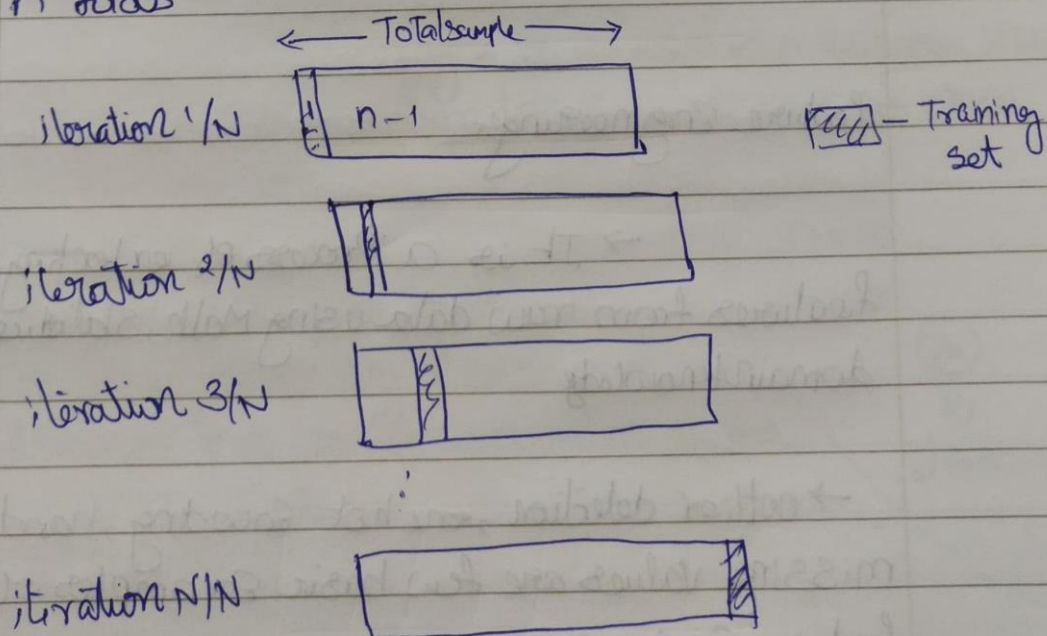 Total sample
iteration 1/N
n-1
Training
set
iteration 2/N
iteration 3/N
iteration N/N